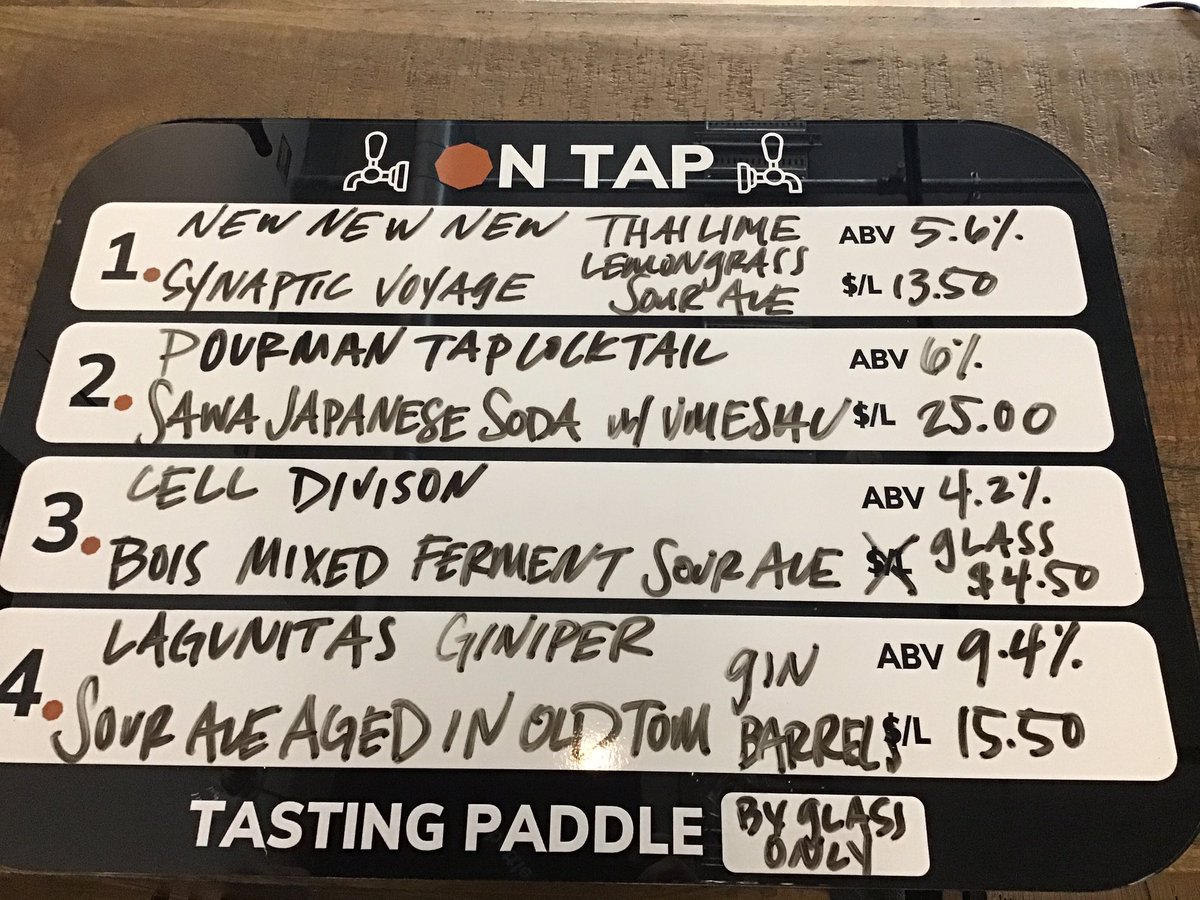 ON TAP
1. NEW NEW NEW THAI LIME ABV 5.6%
SYNAPTIC VOYAGE LEMONGRASS SOUR ALE $/L 13.50
2. POURMAN TAP COCKTAIL ABV 6%
SAWA JAPANESE SODA W/ UMESHU $/L 25.00
3. CELL DIVISON ABV 4.2%
BOIS MIXED FERMENT SOUR ALE $/L GLASS $4.50
4. LAGUNITAS GINIPER ABV 9.4%
SOUR ALE AGED IN OLD TOM GIN BARRELS $/L 15.50
TASTING PADDLE BY GLASS ONLY